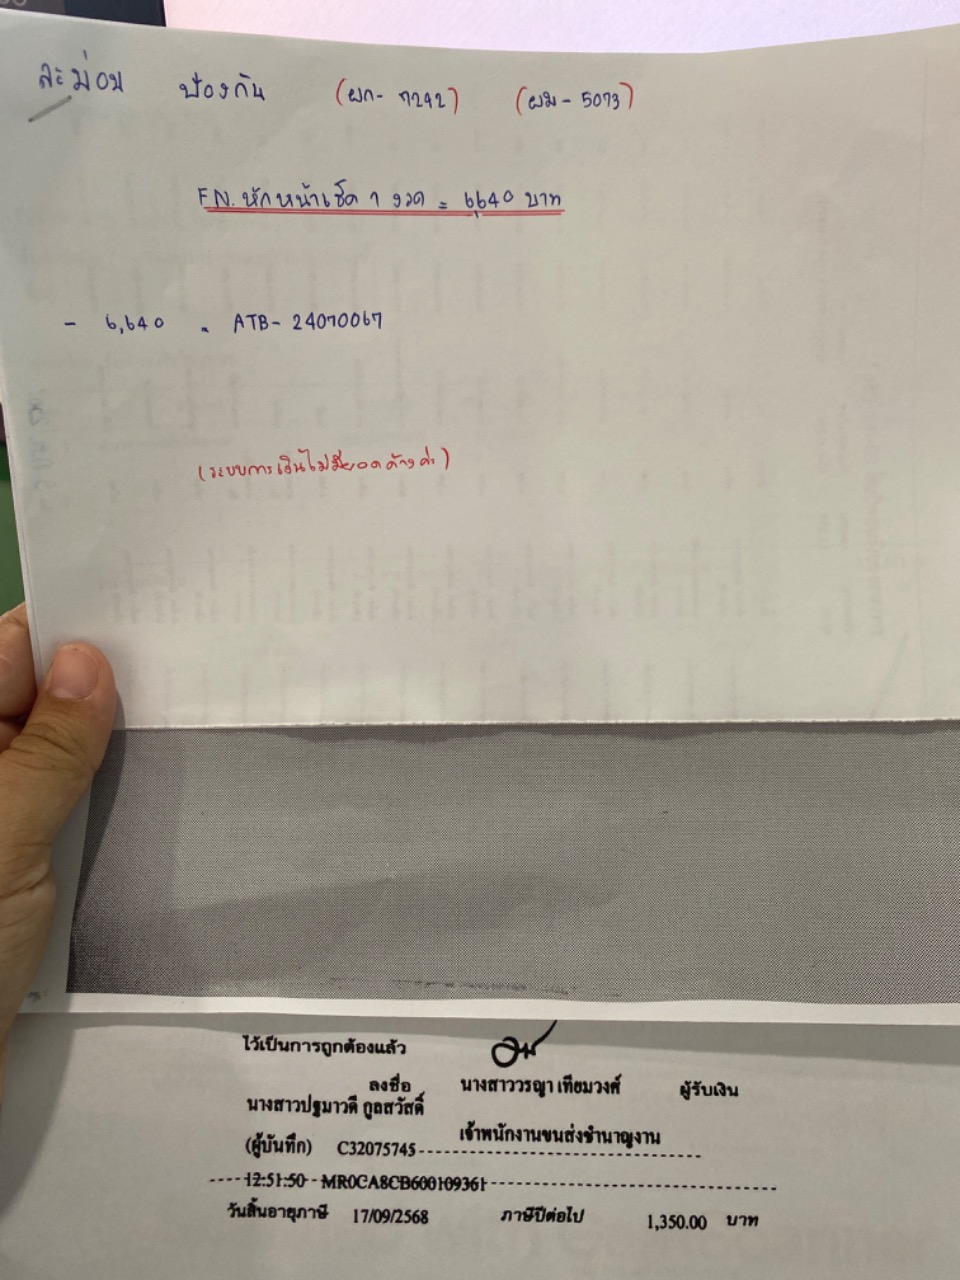 ละม่อน ป้องกัน (ผก-7242) (ผม-5073)
FN. หักหน้าเช็ค 1 งวด = 6640 บาท
- 6,640 = ATB-24070067
(ระบบการเงินไม่มียอดค้างค่ะ)
ไว้เป็นการถูกต้องแล้ว
ลงชื่อ นางสาววรญา เทียมวงศ์ ผู้รับเงิน
นางสาวปฐมาวดี กูลสวัสดิ์
เจ้าพนักงานขนส่งชำนาญงาน
(ผู้บันทึก) C32075745
12:51:50 MR0CA8CB600109361
วันสิ้นอายุภาษี 17/09/2568 ภาษีปีต่อไป 1,350.00 บาท